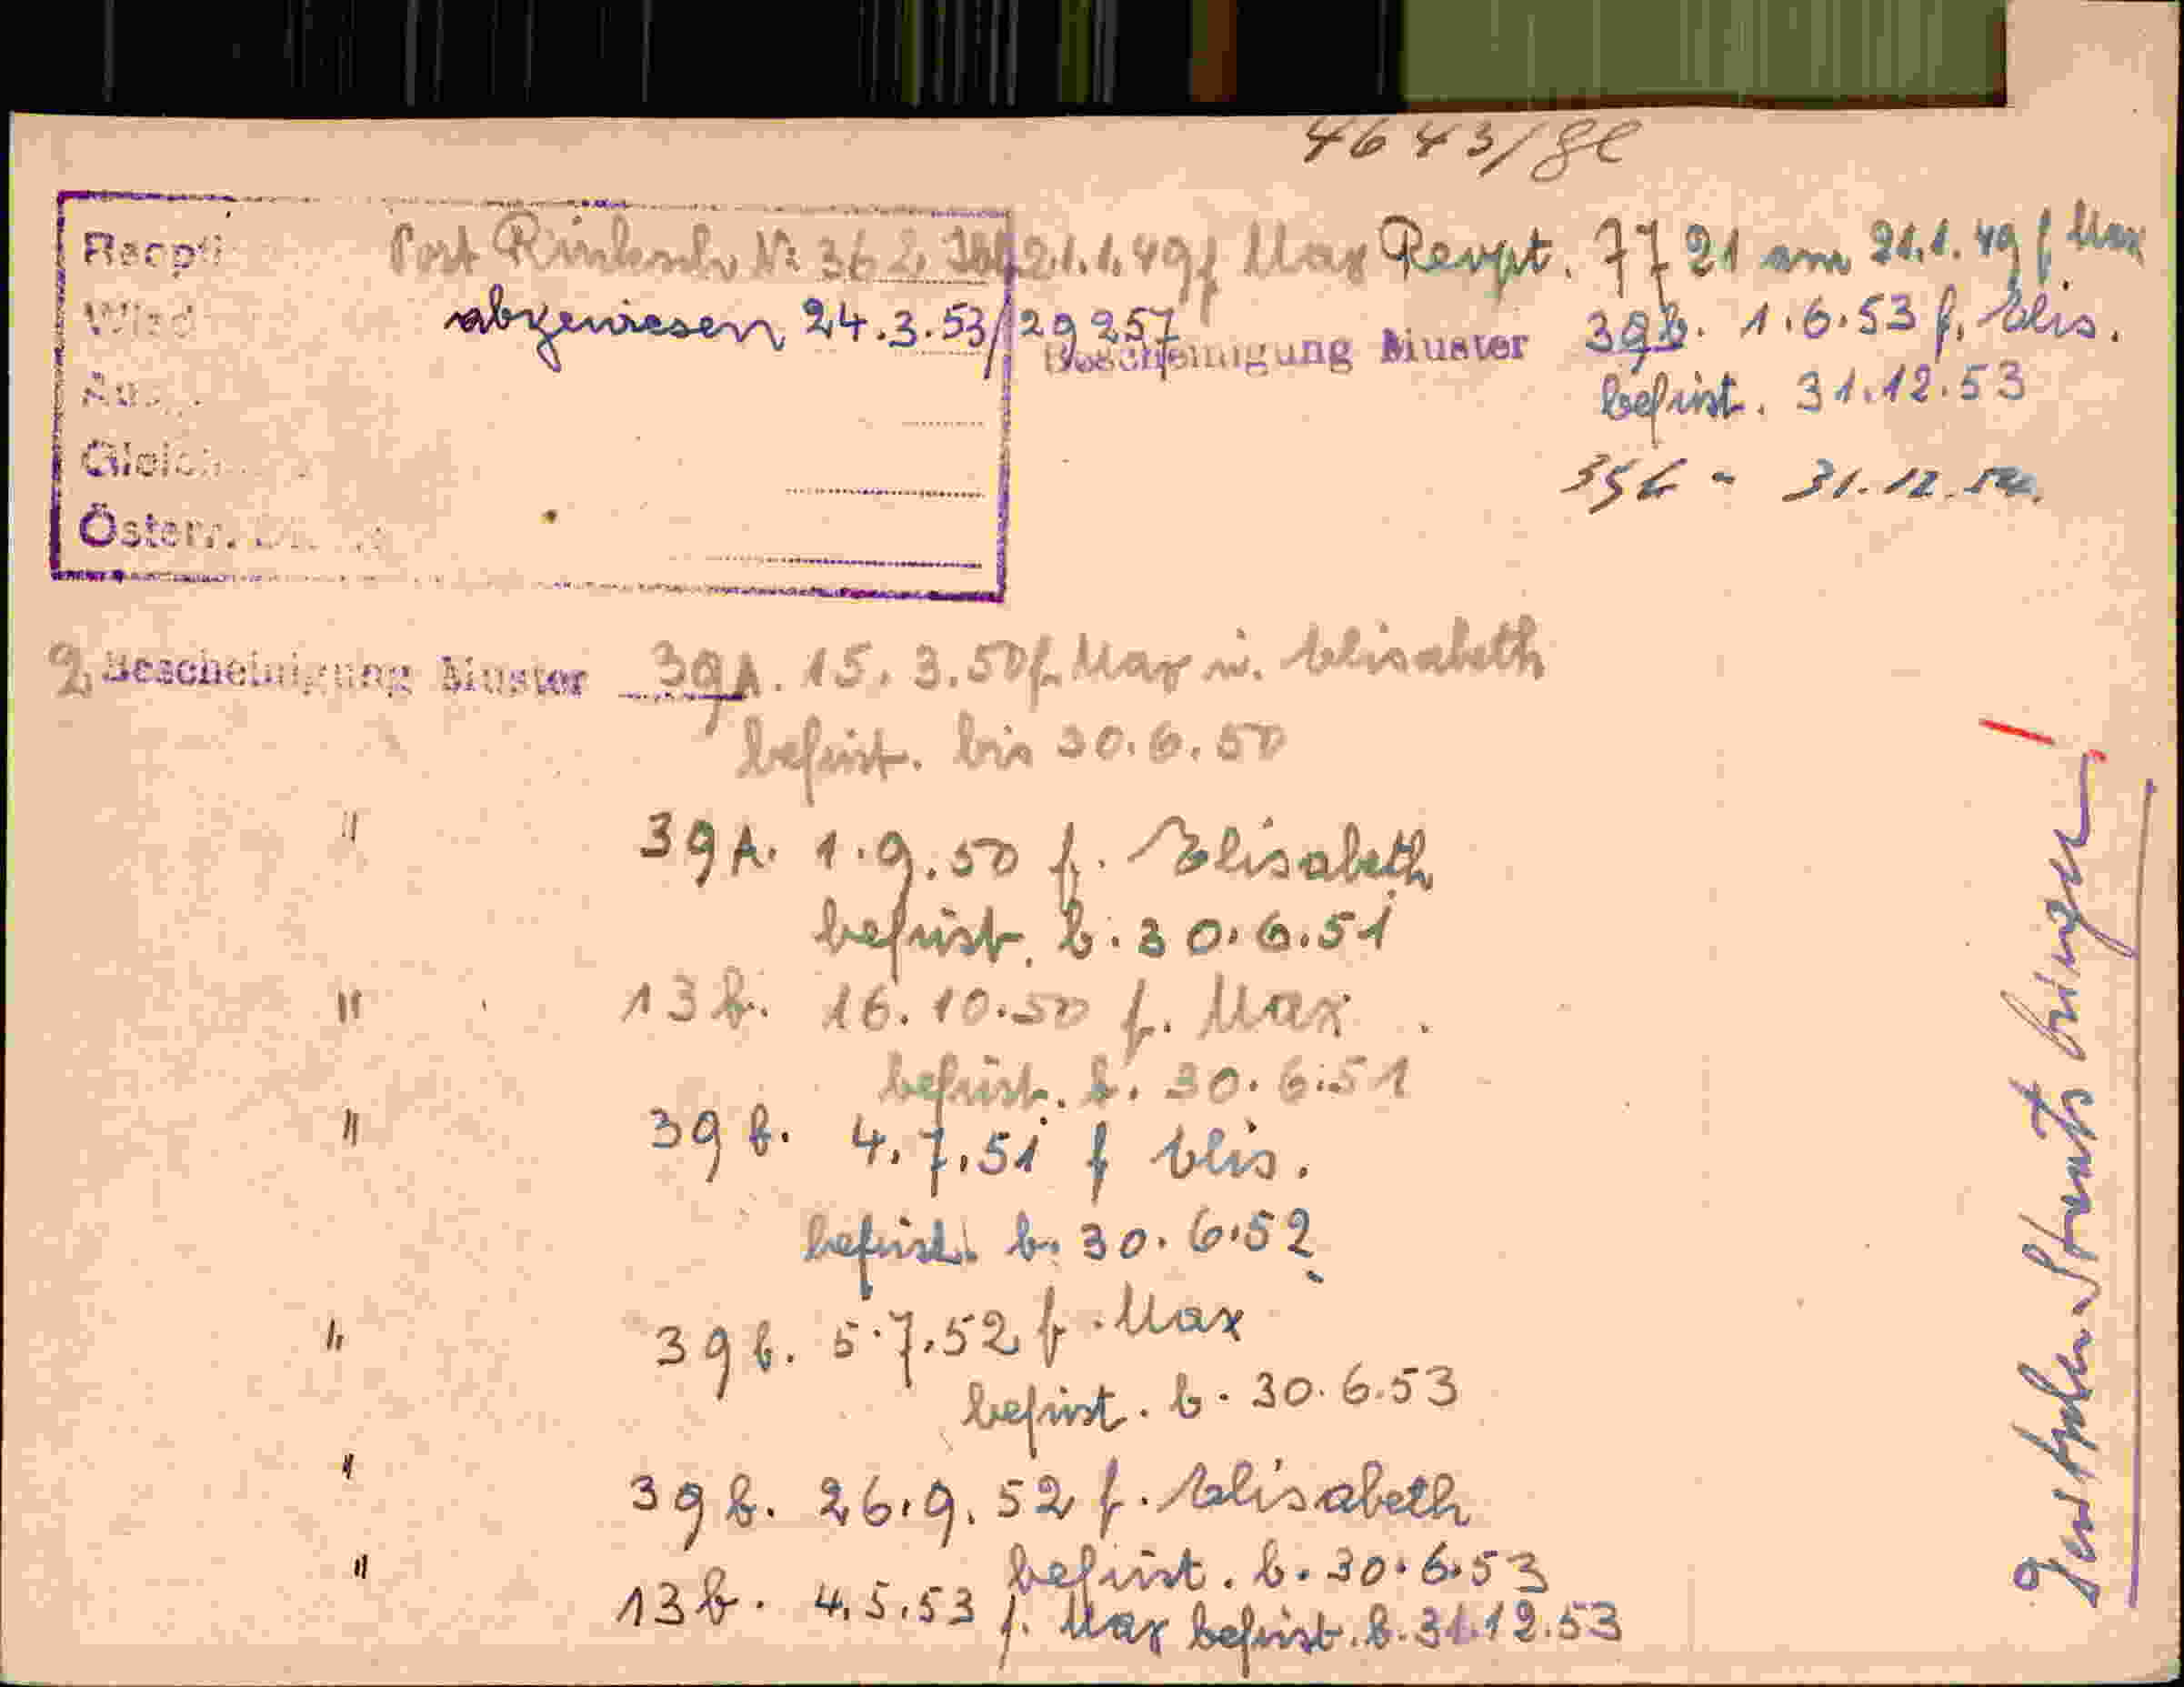 4643/ge
Recpt. 7721 am 21.1.49 f Max
Post 362. 21.1.49 f Max
abgewiesen 24.3.53/29257
Bescheinigung Muster 39b. 1.6.53 f. Elis.
befrist. 31.12.53
31.12.
Gleich
Österr.
2. Bescheinigung Muster 39A. 15.3.50 f. Max u. Elisabeth
befrist. bis 30.6.50
" 39A. 1.9.50 f. Elisabeth
befrist. b. 30.6.51
" 13b. 16.10.50 f. Max
befrist. b. 30.6.51
" 39b. 4.7.51 f Elis.
befrist. b. 30.6.52
" 39b. 5.7.52 f. Max
befrist. b. 30.6.53
" 39b. 26.9.52 f. Elisabeth
befrist. b. 30.6.53
" 13b. 4.5.53 f. Max befrist. b. 31.12.53
bringen!